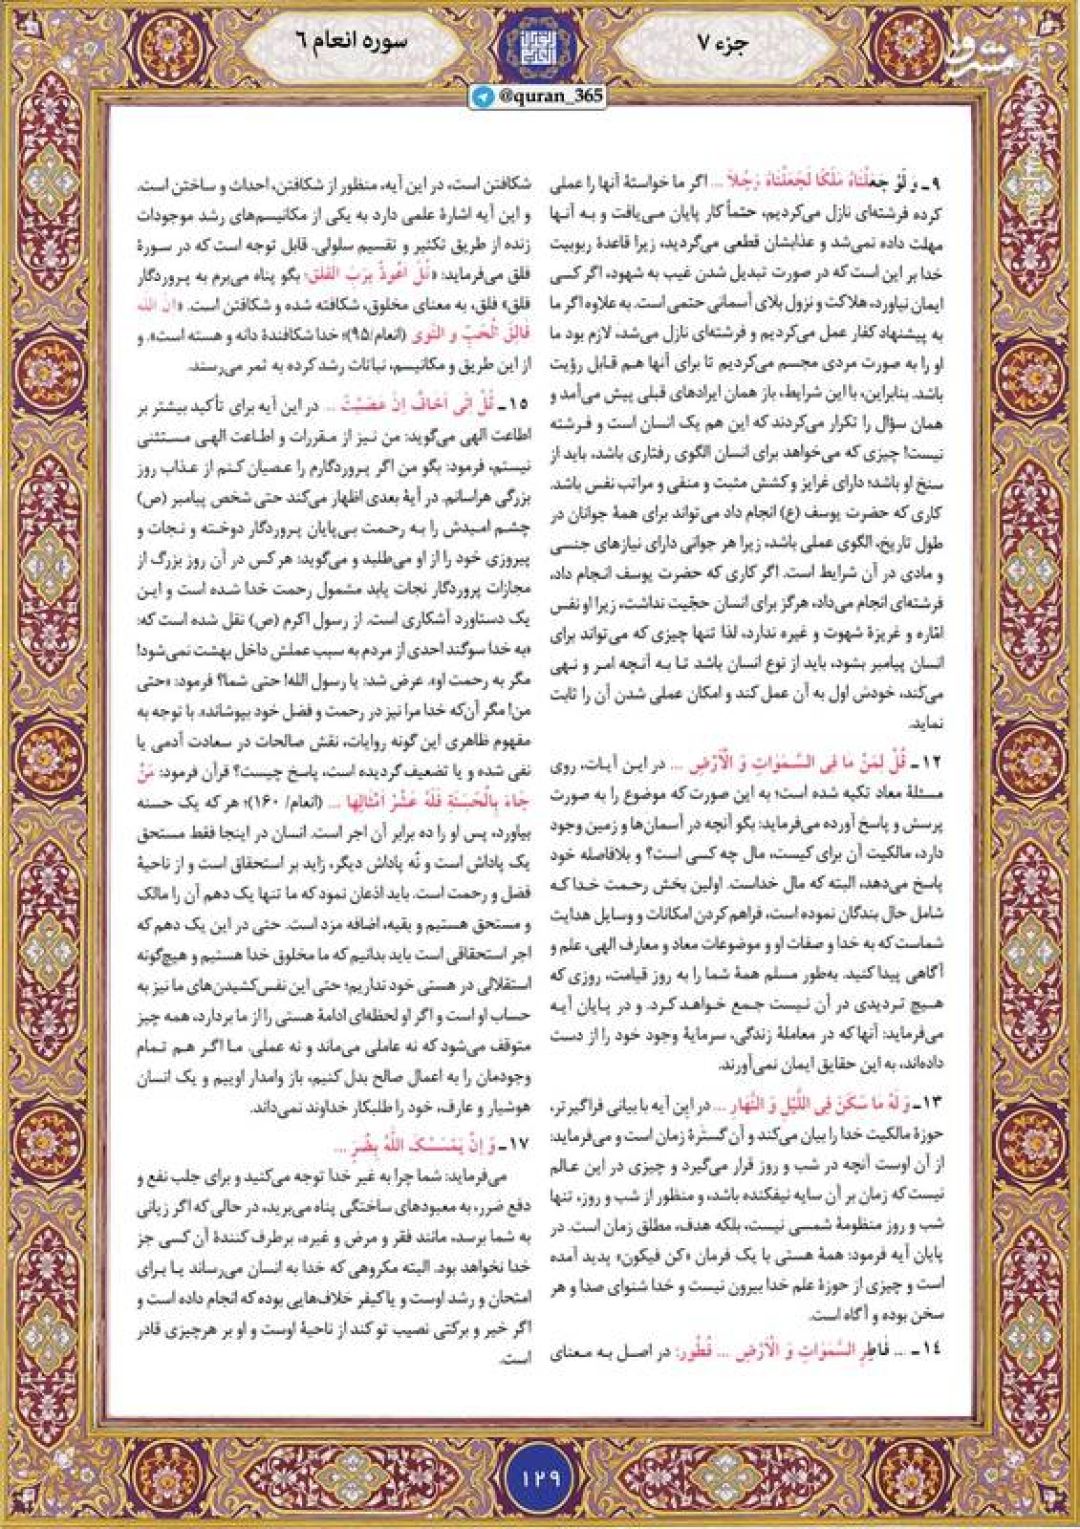 جزء ۷
سوره انعام ۶
@quran_365
مشرق
۹ـ وَ لَوْ جَعَلْنَاهُ مَلَكًا لَجَعَلْنَاهُ رَجُلاً ... اگر ما خواستهٔ آنها را عملی
کرده فرشته‌ای نازل می‌کردیم، حتماً کار پایان می‌یافت و به آنها
مهلت داده نمی‌شد و عذابشان قطعی می‌گردید، زیرا قاعدهٔ ربوبیت
خدا بر این است که در صورت تبدیل شدن غیب به شهود، اگر کسی
ایمان نیاورد، هلاکت و نزول بلای آسمانی حتمی است. به علاوه اگر ما
به پیشنهاد کفار عمل می‌کردیم و فرشته‌ای نازل می‌شد، لازم بود ما
او را به صورت مردی مجسم می‌کردیم تا برای آنها هم قابل رؤیت
باشد. بنابراین، با این شرایط، باز همان ایرادهای قبلی پیش می‌آمد و
همان سؤال را تکرار می‌کردند که این هم یک انسان است و فرشته
نیست! چیزی که می‌خواهد برای انسان الگوی رفتاری باشد، باید از
سنخ او باشد؛ دارای غرایز و کشش مثبت و منفی و مراتب نفس باشد.
کاری که حضرت یوسف (ع) انجام داد می‌تواند برای همهٔ جوانان در
طول تاریخ، الگوی عملی باشد، زیرا هر جوانی دارای نیازهای جنسی
و مادی در آن شرایط است. اگر کاری که حضرت یوسف انجام داد،
فرشته‌ای انجام می‌داد، هرگز برای انسان حجّیت نداشت، زیرا او نفس
امّاره و غریزهٔ شهوت و غیره ندارد، لذا تنها چیزی که می‌تواند برای
انسان پیامبر بشود، باید از نوع انسان باشد تا به آنچه امر و نهی
می‌کند، خودش اول به آن عمل کند و امکان عملی شدن آن را ثابت
نماید.
۱۲ـ قُلْ لِمَنْ مَا فِی السَّمٰوَاتِ وَ الْأَرْضِ ... در این آیات، روی
مسئلهٔ معاد تکیه شده است؛ به این صورت که موضوع را به صورت
پرسش و پاسخ آورده می‌فرماید: بگو آنچه در آسمان‌ها و زمین وجود
دارد، مالکیت آن برای کیست، مال چه کسی است؟ و بلافاصله خود
پاسخ می‌دهد، البته که مال خداست. اولین بخش رحمت خدا که
شامل حال بندگان نموده است، فراهم کردن امکانات و وسایل هدایت
شماست که به خدا و صفات او و موضوعات معاد و معارف الهی، علم و
آگاهی پیدا کنید. به‌طور مسلم همهٔ شما را به روز قیامت، روزی که
هیچ تردیدی در آن نیست جمع خواهد کرد. و در پایان آیه
می‌فرماید: آنها که در معاملهٔ زندگی، سرمایهٔ وجود خود را از دست
داده‌اند، به این حقایق ایمان نمی‌آورند.
۱۳ـ وَ لَهُ مَا سَکَنَ فِی اللَّیْلِ وَ النَّهَارِ ... در این آیه با بیانی فراگیرتر،
حوزهٔ مالکیت خدا را بیان می‌کند و آن گسترهٔ زمان است و می‌فرماید:
از آن اوست آنچه در شب و روز قرار می‌گیرد و چیزی در این عالم
نیست که زمان بر آن سایه نیفکنده باشد، و منظور از شب و روز، تنها
شب و روز منظومهٔ شمسی نیست، بلکه هدف، مطلق زمان است. در
پایان آیه فرمود: همهٔ هستی با یک فرمان «کن فیکون» پدید آمده
است و چیزی از حوزهٔ علم خدا بیرون نیست و خدا شنوای صدا و هر
سخن بوده و آگاه است.
۱۴ـ ... فَاطِرِ السَّمٰوَاتِ وَ الْأَرْضِ ... فُطُور: در اصل به معنای
شکافتن است، در این آیه، منظور از شکافتن، احداث و ساختن است.
و این آیه اشارهٔ علمی دارد به یکی از مکانیسم‌های رشد موجودات
زنده از طریق تکثیر و تقسیم سلولی. قابل توجه است که در سورهٔ
فلق می‌فرماید: «قُلْ اَعُوذُ بِرَبِّ الفَلَق؛ بگو پناه می‌برم به پروردگار
فلق» فلق، به معنای مخلوق، شکافته شده و شکافتن است. «انَّ اللّٰهَ
فَالِقُ الْحَبِّ وَ النَّوی (انعام/۹۵)؛ خدا شکافندهٔ دانه و هسته است». و
از این طریق و مکانیسم، نباتات رشد کرده به ثمر می‌رسند.
۱۵ـ قُلْ اِنّی اَخَافُ اِنْ عَصَیْتُ ... در این آیه برای تأکید بیشتر بر
اطاعت الهی می‌گوید: من نیز از مقررات و اطاعت الهی مستثنی
نیستم، فرمود: بگو من اگر پروردگارم را عصیان کنم از عذاب روز
بزرگی هراسانم. در آیهٔ بعدی اظهار می‌کند حتی شخص پیامبر (ص)
چشم امیدش را به رحمت بی‌پایان پروردگار دوخته و نجات و
پیروزی خود را از او می‌طلبد و می‌گوید: هر کس در آن روز بزرگ از
مجازات پروردگار نجات یابد مشمول رحمت خدا شده است و این
یک دستاورد آشکاری است. از رسول اکرم (ص) نقل شده است که:
«به خدا سوگند احدی از مردم به سبب عملش داخل بهشت نمی‌شود!
مگر به رحمت او». عرض شد: یا رسول الله! حتی شما؟ فرمود: «حتی
من! مگر آن‌که خدا مرا نیز در رحمت و فضل خود بپوشاند». با توجه به
مفهوم ظاهری این گونه روایات، نقش صالحات در سعادت آدمی یا
نفی شده و یا تضعیف گردیده است، پاسخ چیست؟ قرآن فرمود: مَنْ
جَاءَ بِالْحَسَنَةِ فَلَهُ عَشْرُ اَمْثَالِهَا ... (انعام/ ۱۶۰)؛ هر که یک حسنه
بیاورد، پس او را ده برابر آن اجر است. انسان در اینجا فقط مستحق
یک پاداش است و نُه پاداش دیگر، زاید بر استحقاق است و از ناحیهٔ
فضل و رحمت است. باید اذعان نمود که ما تنها یک دهم آن را مالک
و مستحق هستیم و بقیه، اضافه مزد است. حتی در این یک دهم که
اجر استحقاقی است باید بدانیم که ما مخلوق خدا هستیم و هیچ‌گونه
استقلالی در هستی خود نداریم؛ حتی این نفس‌کشیدن‌های ما نیز به
حساب او است و اگر او لحظه‌ای ادامهٔ هستی را از ما بردارد، همه چیز
متوقف می‌شود که نه عاملی می‌ماند و نه عملی. ما اگر هم تمام
وجودمان را به اعمال صالح بدل کنیم، باز وامدار اوییم و یک انسان
هوشیار و عارف، خود را طلبکار خداوند نمی‌داند.
۱۷ـ وَ اِنْ یَمْسَسْکَ اللّٰهُ بِضُرٍّ ...
می‌فرماید: شما چرا به غیر خدا توجه می‌کنید و برای جلب نفع و
دفع ضرر، به معبودهای ساختگی پناه می‌برید، در حالی که اگر زیانی
به شما برسد، مانند فقر و مرض و غیره، برطرف کنندهٔ آن کسی جز
خدا نخواهد بود. البته مکروهی که خدا به انسان می‌رساند یا برای
امتحان و رشد اوست و یا کیفر خلاف‌هایی بوده که انجام داده است و
اگر خیر و برکتی نصیب تو کند از ناحیهٔ اوست و او بر هر چیزی قادر
است.
۱۲۹